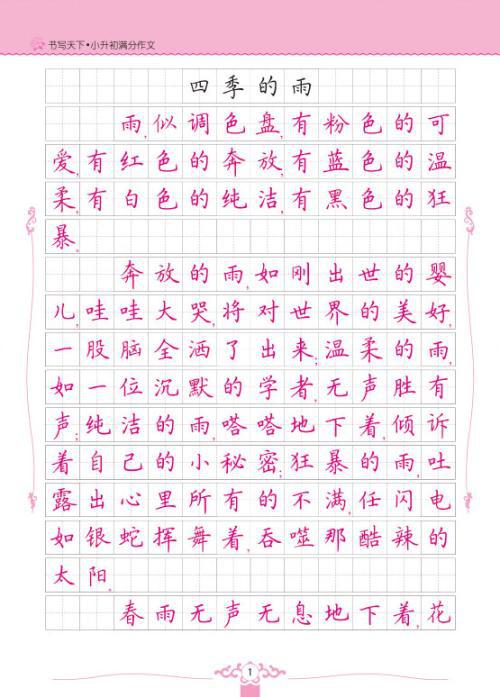 书写天下•小升初满分作文
四季的雨
雨,似调色盘,有粉色的可
爱,有红色的奔放,有蓝色的温
柔,有白色的纯洁,有黑色的狂
暴.
奔放的雨,如刚出世的婴
儿,哇哇大哭,将对世界的美好,
一股脑全洒了出来;温柔的雨,
如一位沉默的学者,无声胜有
声;纯洁的雨,嗒嗒地下着,倾诉
着自己的小秘密;狂暴的雨,吐
露出心里所有的不满,任闪电
如银蛇挥舞着,吞噬那酷辣的
太阳.
春雨无声无息地下着,花
1